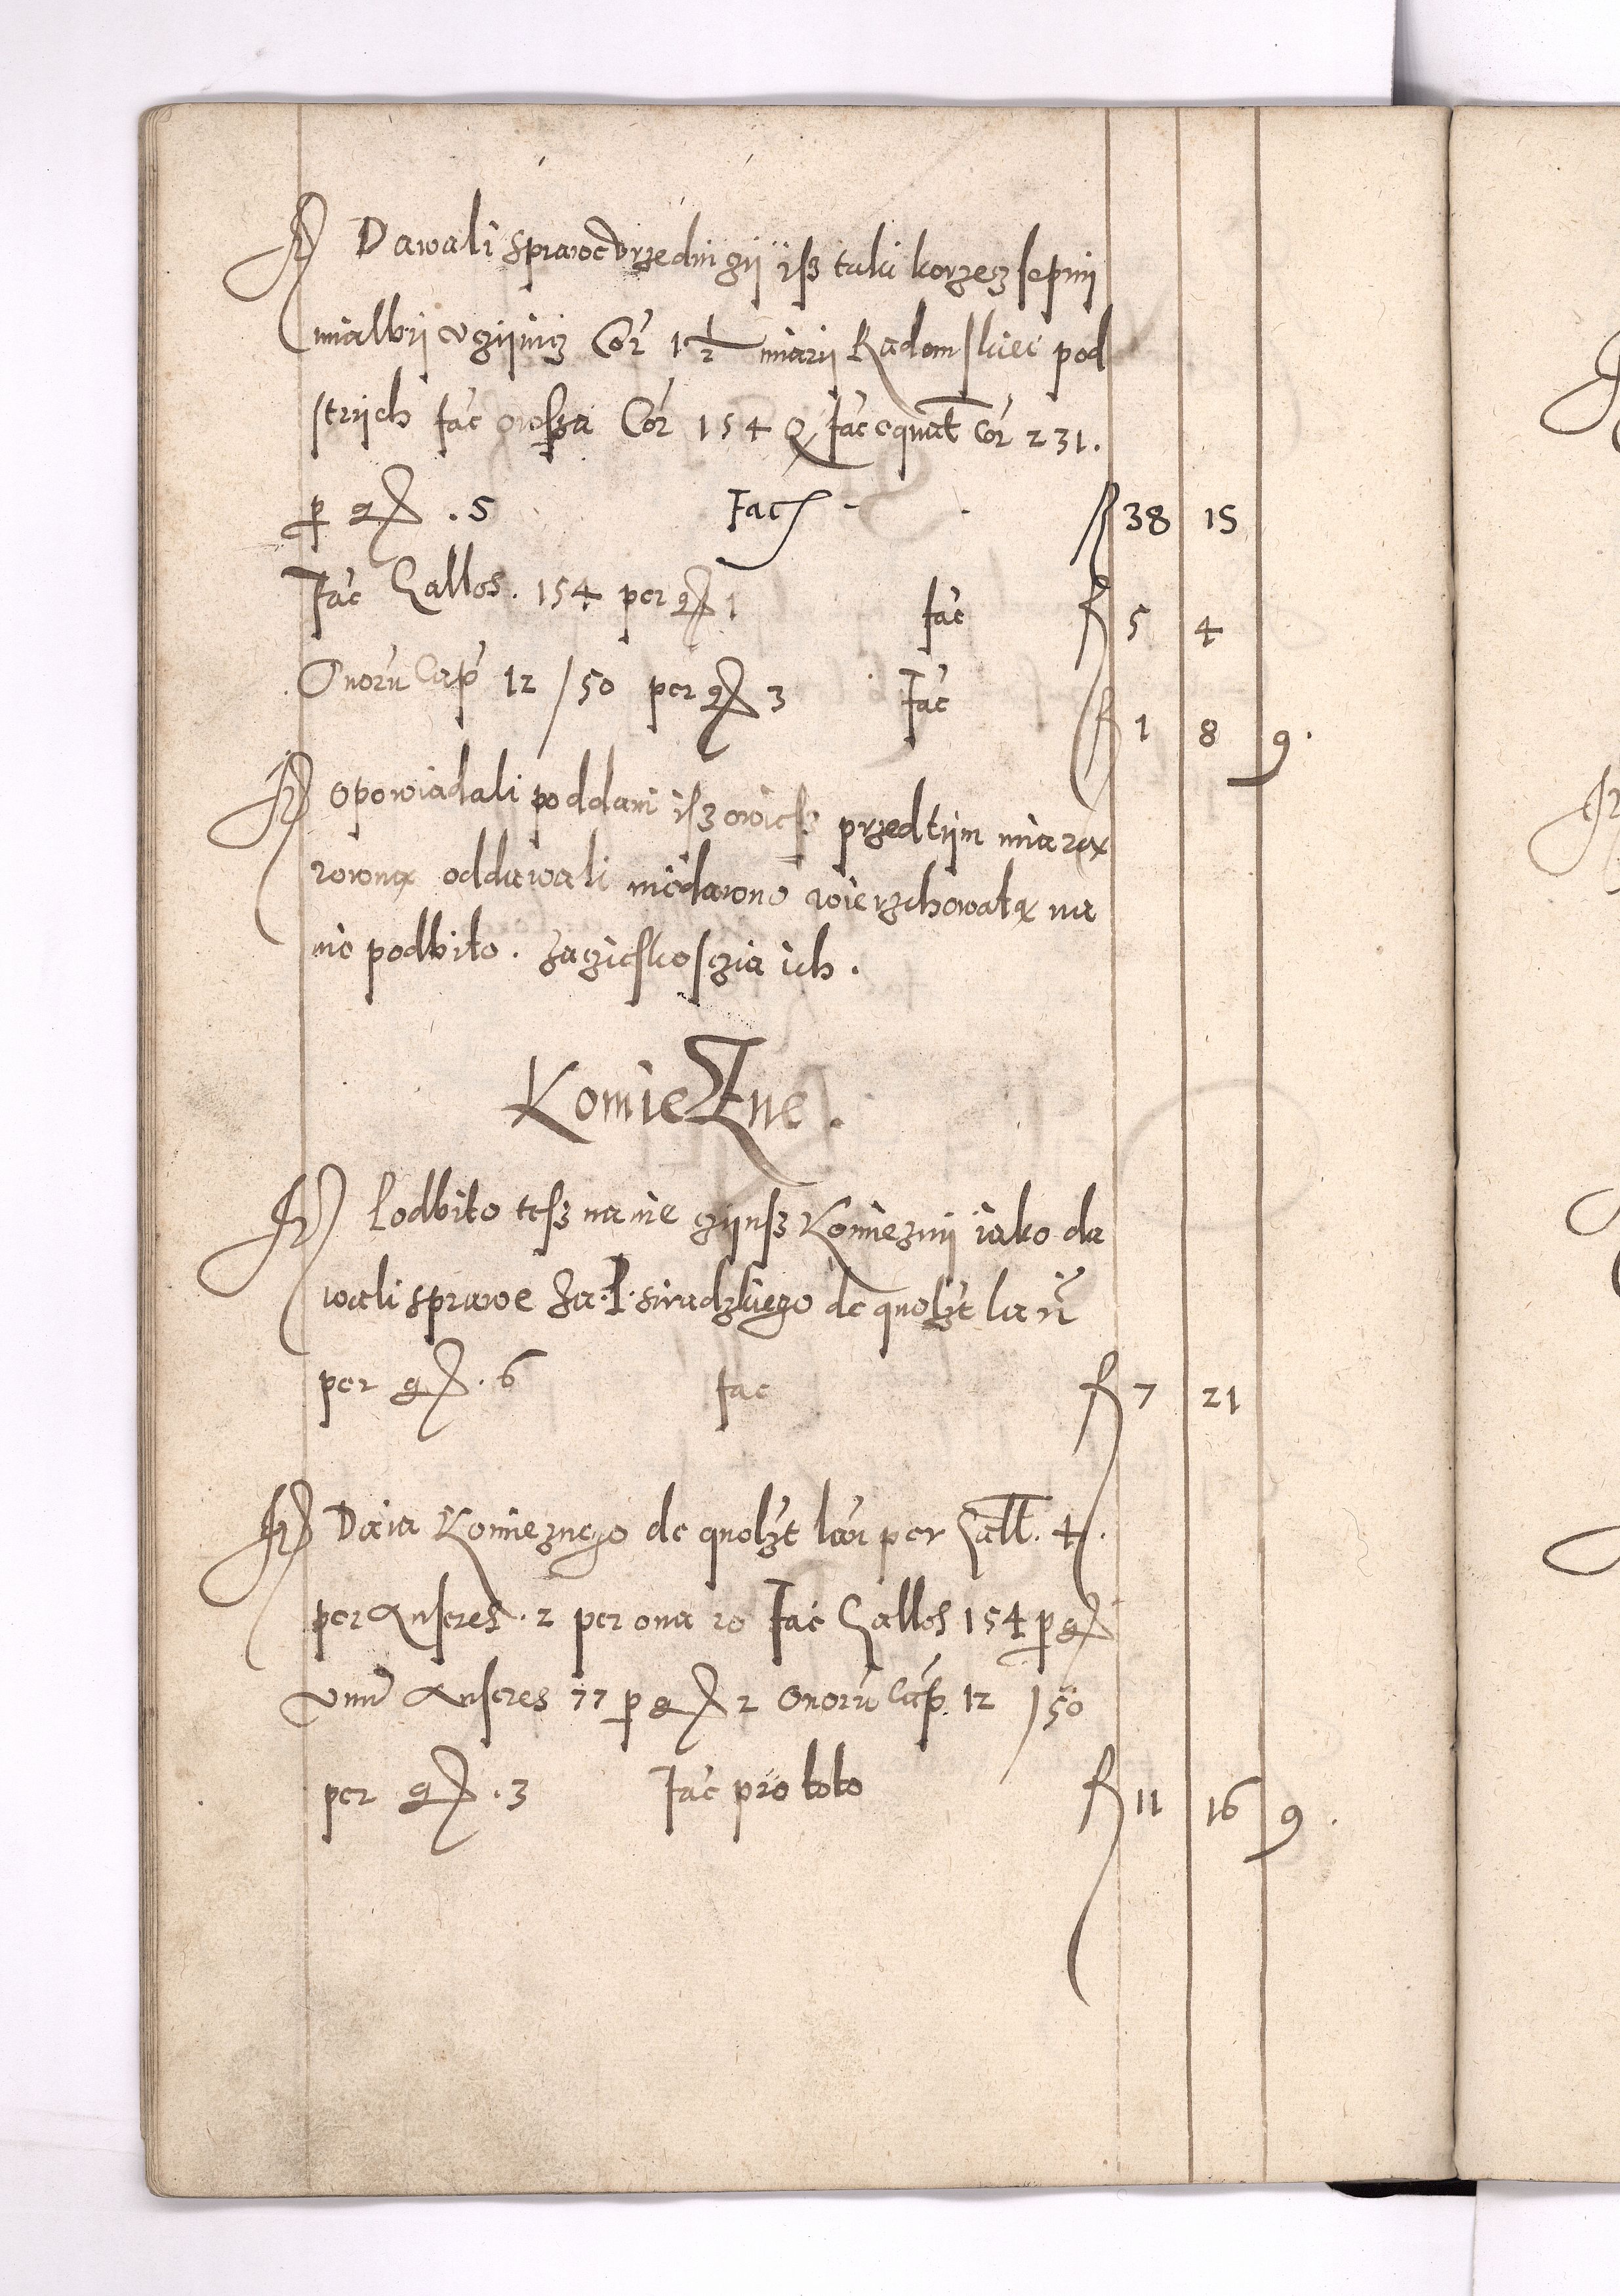 It Dawali sprawę vrzędniczÿ isz taki korzecz sepnÿ
mialbÿ vczÿnicz Cor 1½ miarÿ Radomskieÿ pod
strÿch fac owsza Cor 154 Q fac equat Cor 231.
p gr . 5 Fac f 38 15
Fac Gallos . 154 per gr 1 fac f 5 4
Ouorũ Cap 12 / 50 per gr 3 Fac f 1 8 9 .
It opowiadali poddani isz owies przedtÿm miarą
rowną oddawali niedawno wierzchowatą na
nie podbito . za czieskoszia ich .
Komiezne .
It Podbito tesz na nie czÿnsz Komieznÿ iako da
wali sprawe za . P . siradzkiego de quolzt lan
per gr . 6 fac f 7 21
It Daia Komieznego de quolzt lan per Gall . 4 .
per Anseres . 2 per oua 20 Fac Gallos 154 p gr
vnũ Anseres 77 p gr 2 Ouorũ Cap . 12 / 50
per gr . 3 Fac pro toto f 11 16 9 .